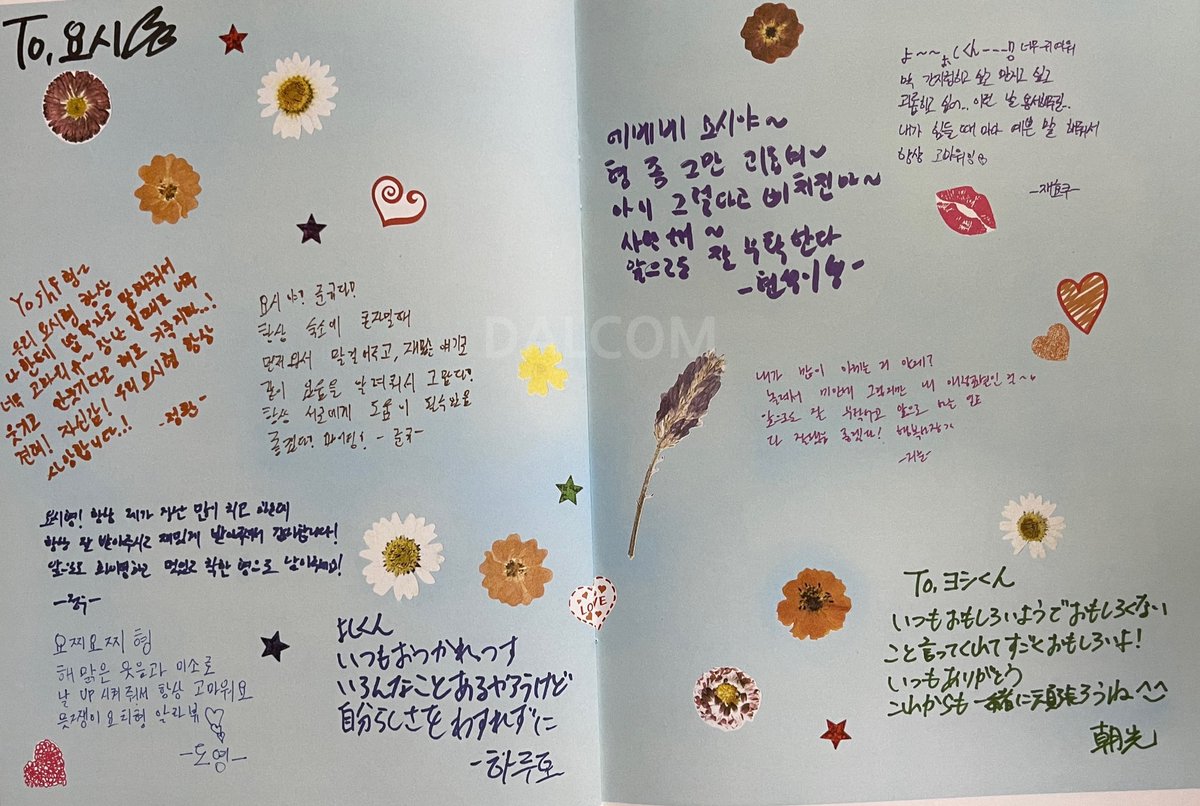 To, 요시
Yoshi형~
우리 요시형 항상
나한테 밥 먹자고 말해줘서
너무 고마워ㅠ~ 장난 칠때도 너무
웃기고 안웃기다고 해도 기죽지마..!
전혀! 자신감! 우리 요시형 항상
사랑합니다.!
-정환-
요시야?
항상 숙소에 혼자일때
먼저 와서 말 걸어주고, 재밌는 얘기로
같이 웃음을 알려줘서 고맙다!
항상 서로에게 도움이 될수있음
좋겠다! 파이팅!
요시형! 항상 제가 장난 많이 치고 하는데
항상 잘 받아주시고 재밌게 받아줘서 감사합니다!
앞으로도 멋있고 착한 형으로 남아주세요!
요찌요찌 형
해맑은 웃음과 미소로
날 UP 시켜줘서 항상 고마워요
믓쟁이 요티형 알라뷰
-도영-
よしくん
いつもおつかれっす
いろんなことあるやろうけど
自分らしさをわすれずに
-하루토
에헤헤 요시야~
형 좀 그만 괴롭혀~
아니 그렇다고 삐치진마~
사랑해~
앞으로도 잘 부탁한다
-현석이형-
よ~~しくん---!! 너무 귀여워
막 간지럽히고 싶고 만지고 싶고
괴롭히고 싶어.. 이런 날 용서해주길.
내가 힘들 때 마다 예쁜 말 해줘서
항상 고마워잉
내가 많이 아끼는 거 알제?
앞으로도 잘 부탁하고 앞으로
다 잘됐음 좋겠다! 행복하자
LOVE
To, ヨシくん
いつもおもしろいようでおもしろくない
こと言ってくれてすごくおもしろいよ!
いつもありがとう
これからも一緒に頑張ろうね^^
朝光
DALCOM